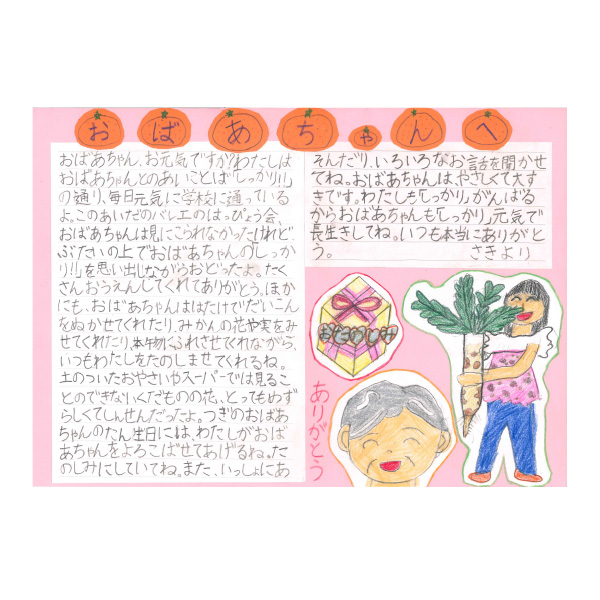 おばあちゃんへ
おばあちゃん、お元気ですか?わたしは
おばあちゃんとのあいことば「しっかり!!」
の通り、毎日元気に学校に通っている
よ。このあいだのバレエのはっぴょう会、
おばあちゃんは見にこられなかったけれど、
ぶたいの上でおばあちゃんの「しっか
り!!」を思い出しながらおどったよ。たく
さんおうえんしてくれてありがとう。ほか
にも、おばあちゃんははたけでだいこん
をぬかせてくれたり、みかんの花や実をみ
せてくれたり、本物にふれさせてくれながら、
いつもわたしをたのしませてくれるね。
土のついたおやさいやスーパーでは見るこ
とのできないくだものの花、とってもめず
らしくてしんせんだったよ。つぎのおばあ
ちゃんのたん生日には、わたしがおば
あちゃんをよろこばせてあげるね。た
のしみにしていてね。また、いっしょにあ
そんだり、いろいろなお話を聞かせ
てね。おばあちゃんは、やさしくて大す
きです。わたしも「しっかり」がんばる
からおばあちゃんも「しっかり」元気で
長生きしてね。いつも本当にありがと
う。さきより
おたのしみ
ありがとう